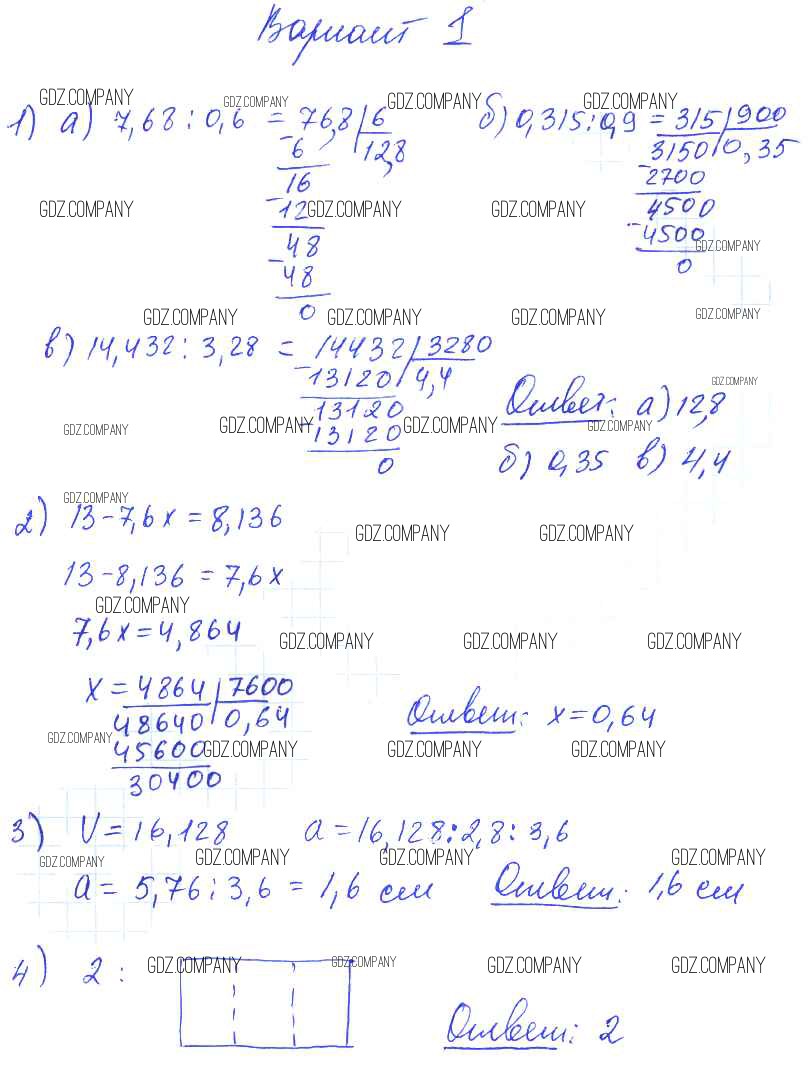 Вариант 1
GDZ.COMPANY GDZ.COMPANY GDZ.COMPANY GDZ.COMPANY
1) а) 7,68 : 0,6 = 76,8 | 6
- 6 12,8
16
- 12
48
- 48
0
б) 0,315 : 0,9 = 315 | 900
3150 0,35
- 2700
4500
- 4500
0
GDZ.COMPANY GDZ.COMPANY GDZ.COMPANY
GDZ.COMPANY
GDZ.COMPANY GDZ.COMPANY GDZ.COMPANY GDZ.COMPANY
в) 14,432 : 3,28 = 14432 | 3280
- 13120 4,4
13120
- 13120
0
GDZ.COMPANY
Ответ: а) 12,8
GDZ.COMPANY GDZ.COMPANY GDZ.COMPANY GDZ.COMPANY
б) 0,35 в) 4,4
GDZ.COMPANY
2) 13 - 7,6x = 8,136
GDZ.COMPANY GDZ.COMPANY
13 - 8,136 = 7,6x
GDZ.COMPANY
7,6x = 4,864
GDZ.COMPANY GDZ.COMPANY GDZ.COMPANY
x = 4864 | 7600
48640 0,64
45600
30400
Ответ: x = 0,64
GDZ.COMPANY GDZ.COMPANY GDZ.COMPANY GDZ.COMPANY
3) V = 16,128 a = 16,128 : 2,8 : 3,6
GDZ.COMPANY GDZ.COMPANY GDZ.COMPANY GDZ.COMPANY
a = 5,76 : 3,6 = 1,6 см Ответ: 1,6 см
4) 2 :
GDZ.COMPANY GDZ.COMPANY GDZ.COMPANY GDZ.COMPANY
Ответ: 2